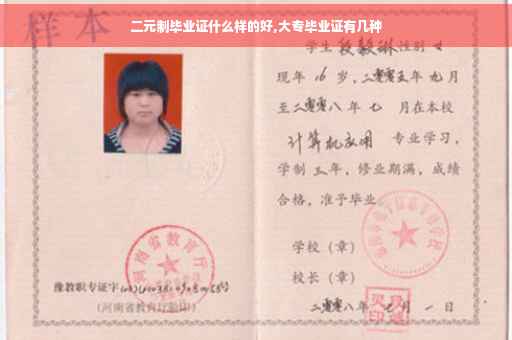 二元制毕业证什么样的好,大专毕业证有几种
样本
学生段毅琳性别 女
现年 16 岁,二零零五年 九月
至二零零八 年 七 月在本校
计算机应用 专业学习,
学制 三年,修业期满,成绩
合格,准予毕业
学校(章)
校长(章)
二零零八年 七 月 一 日
河南省教育厅
豫教职专证字
(河南省教育厅验印)